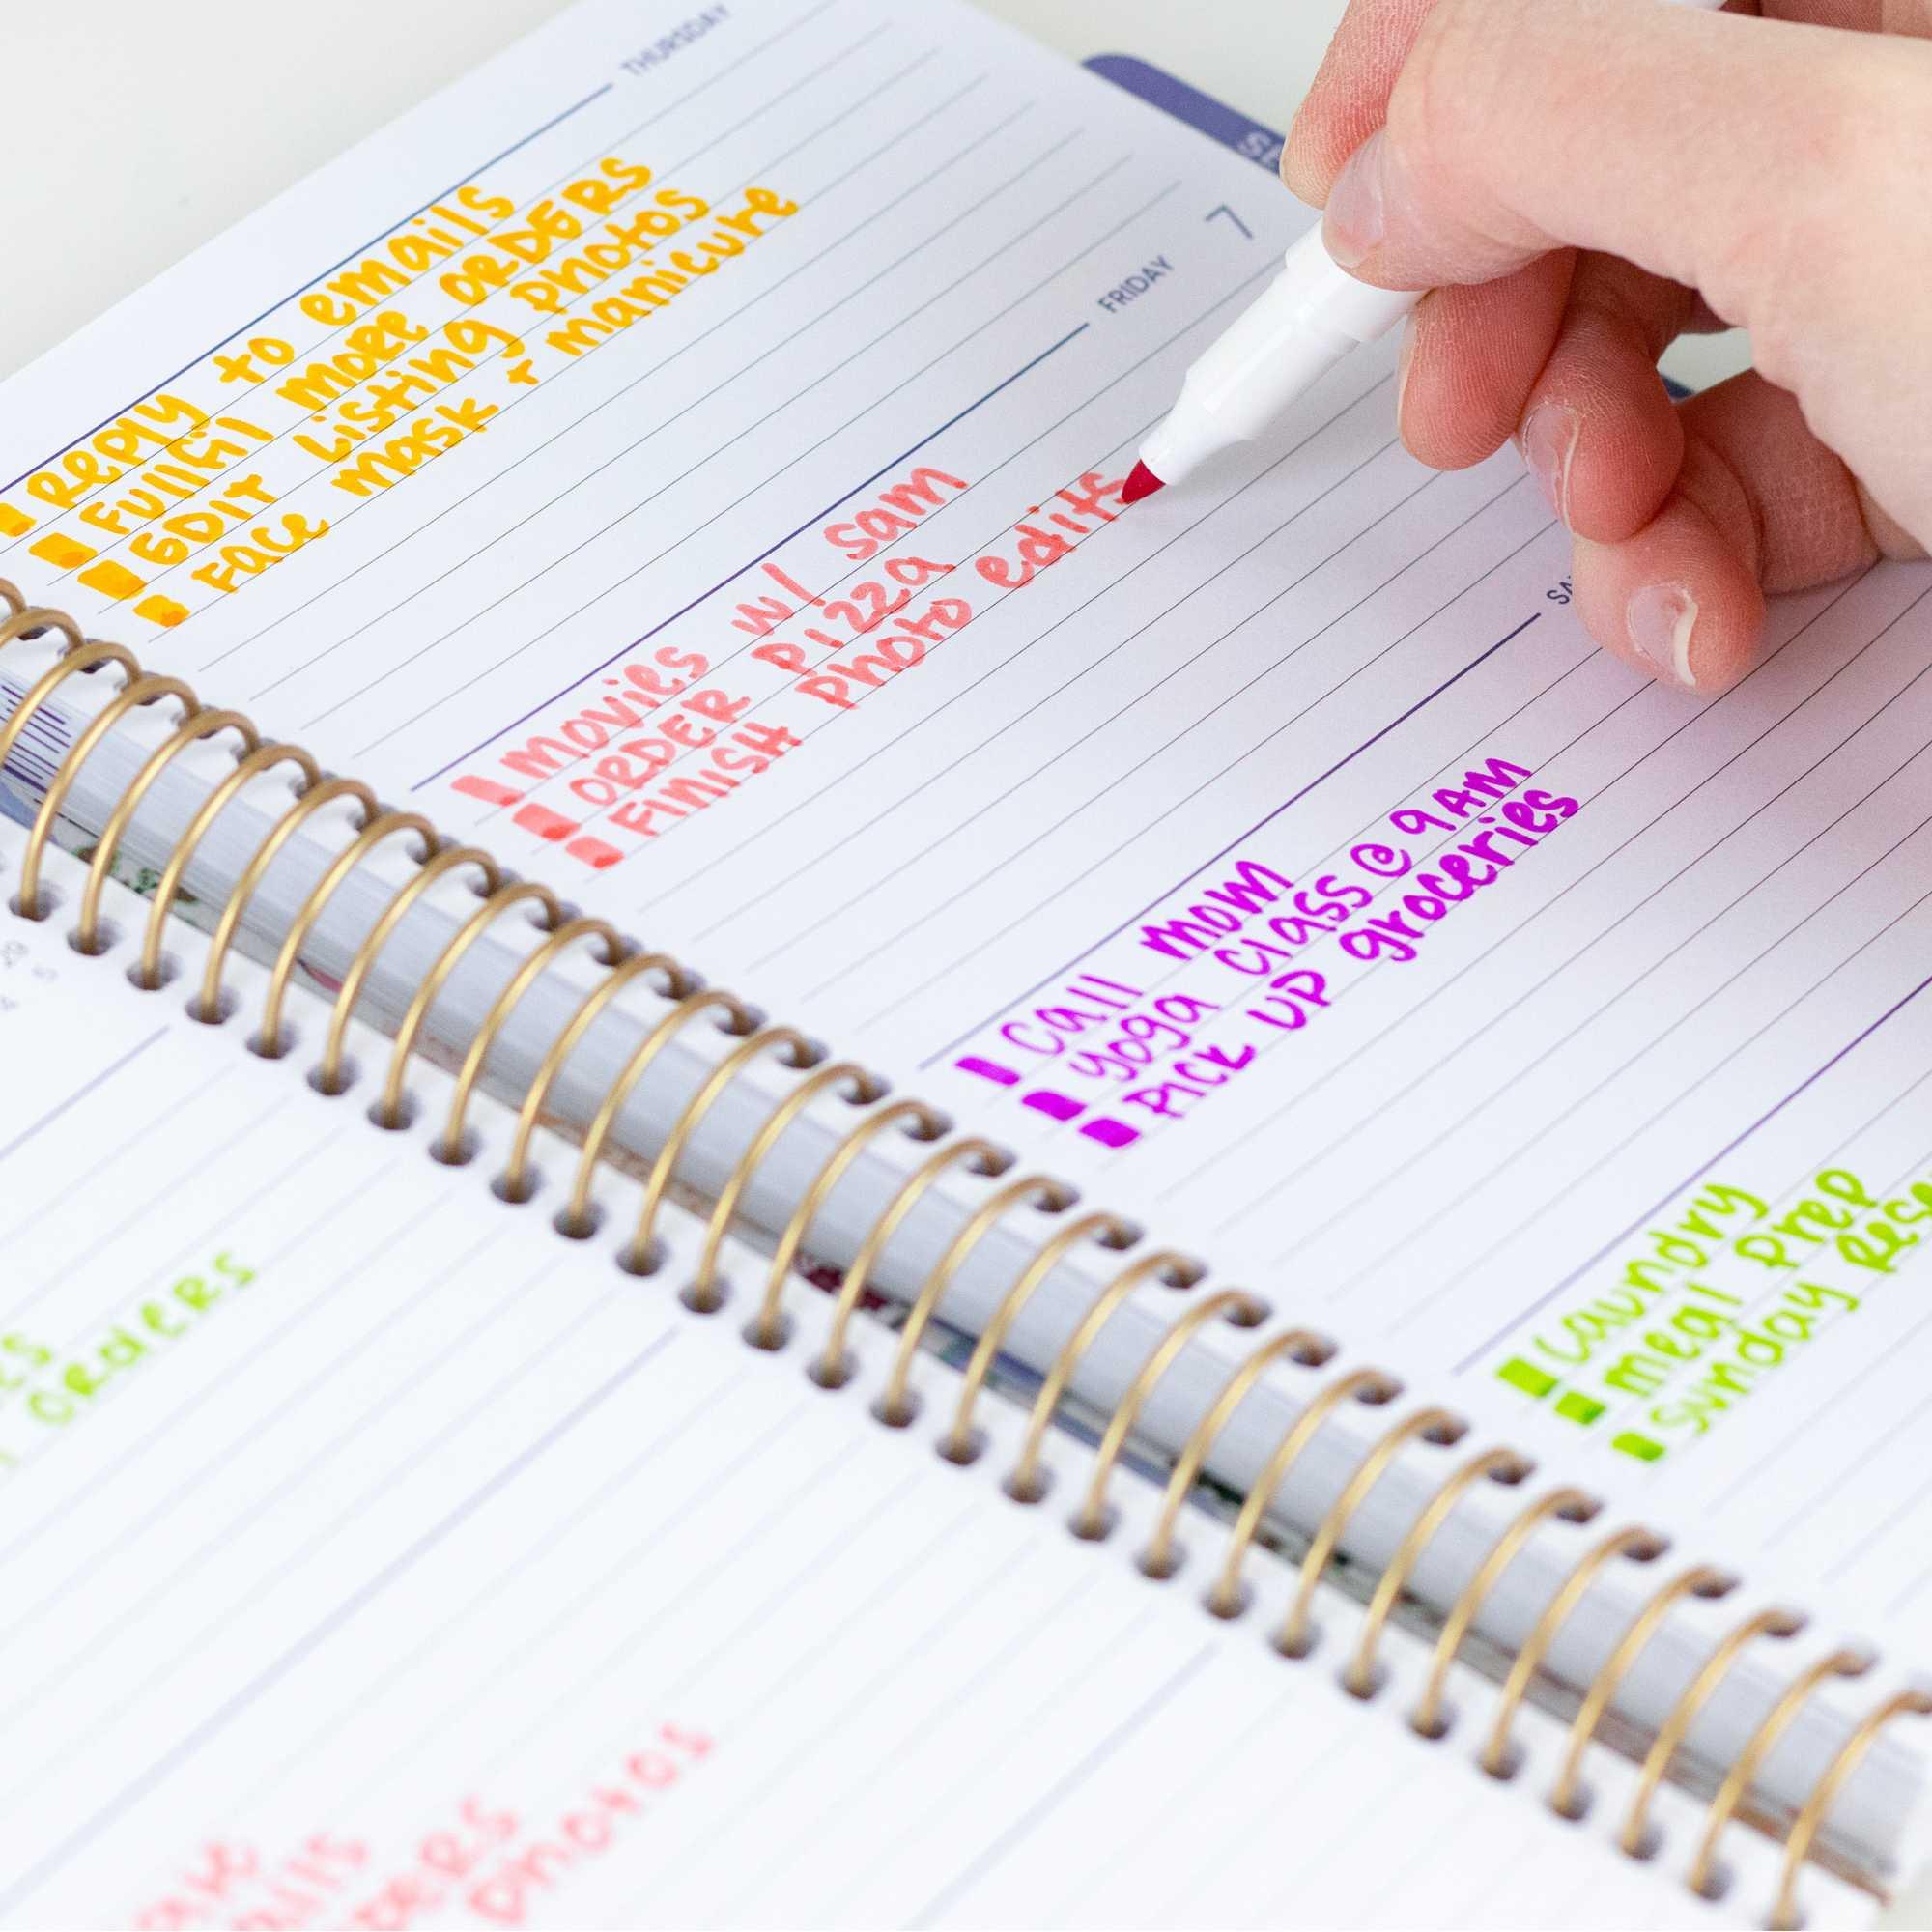 THURSDAY
Reply to emails
Fullfil more ORDERS
EDIT Listing photos
Face mask + manicure
7
FRIDAY
movies w/ sam
ORDER pizza
FINISH photo edits
call mom
yoga class @ 9 AM
PICK UP groceries
Laundry
meal prep
sunday
orders
photos
29
5
4